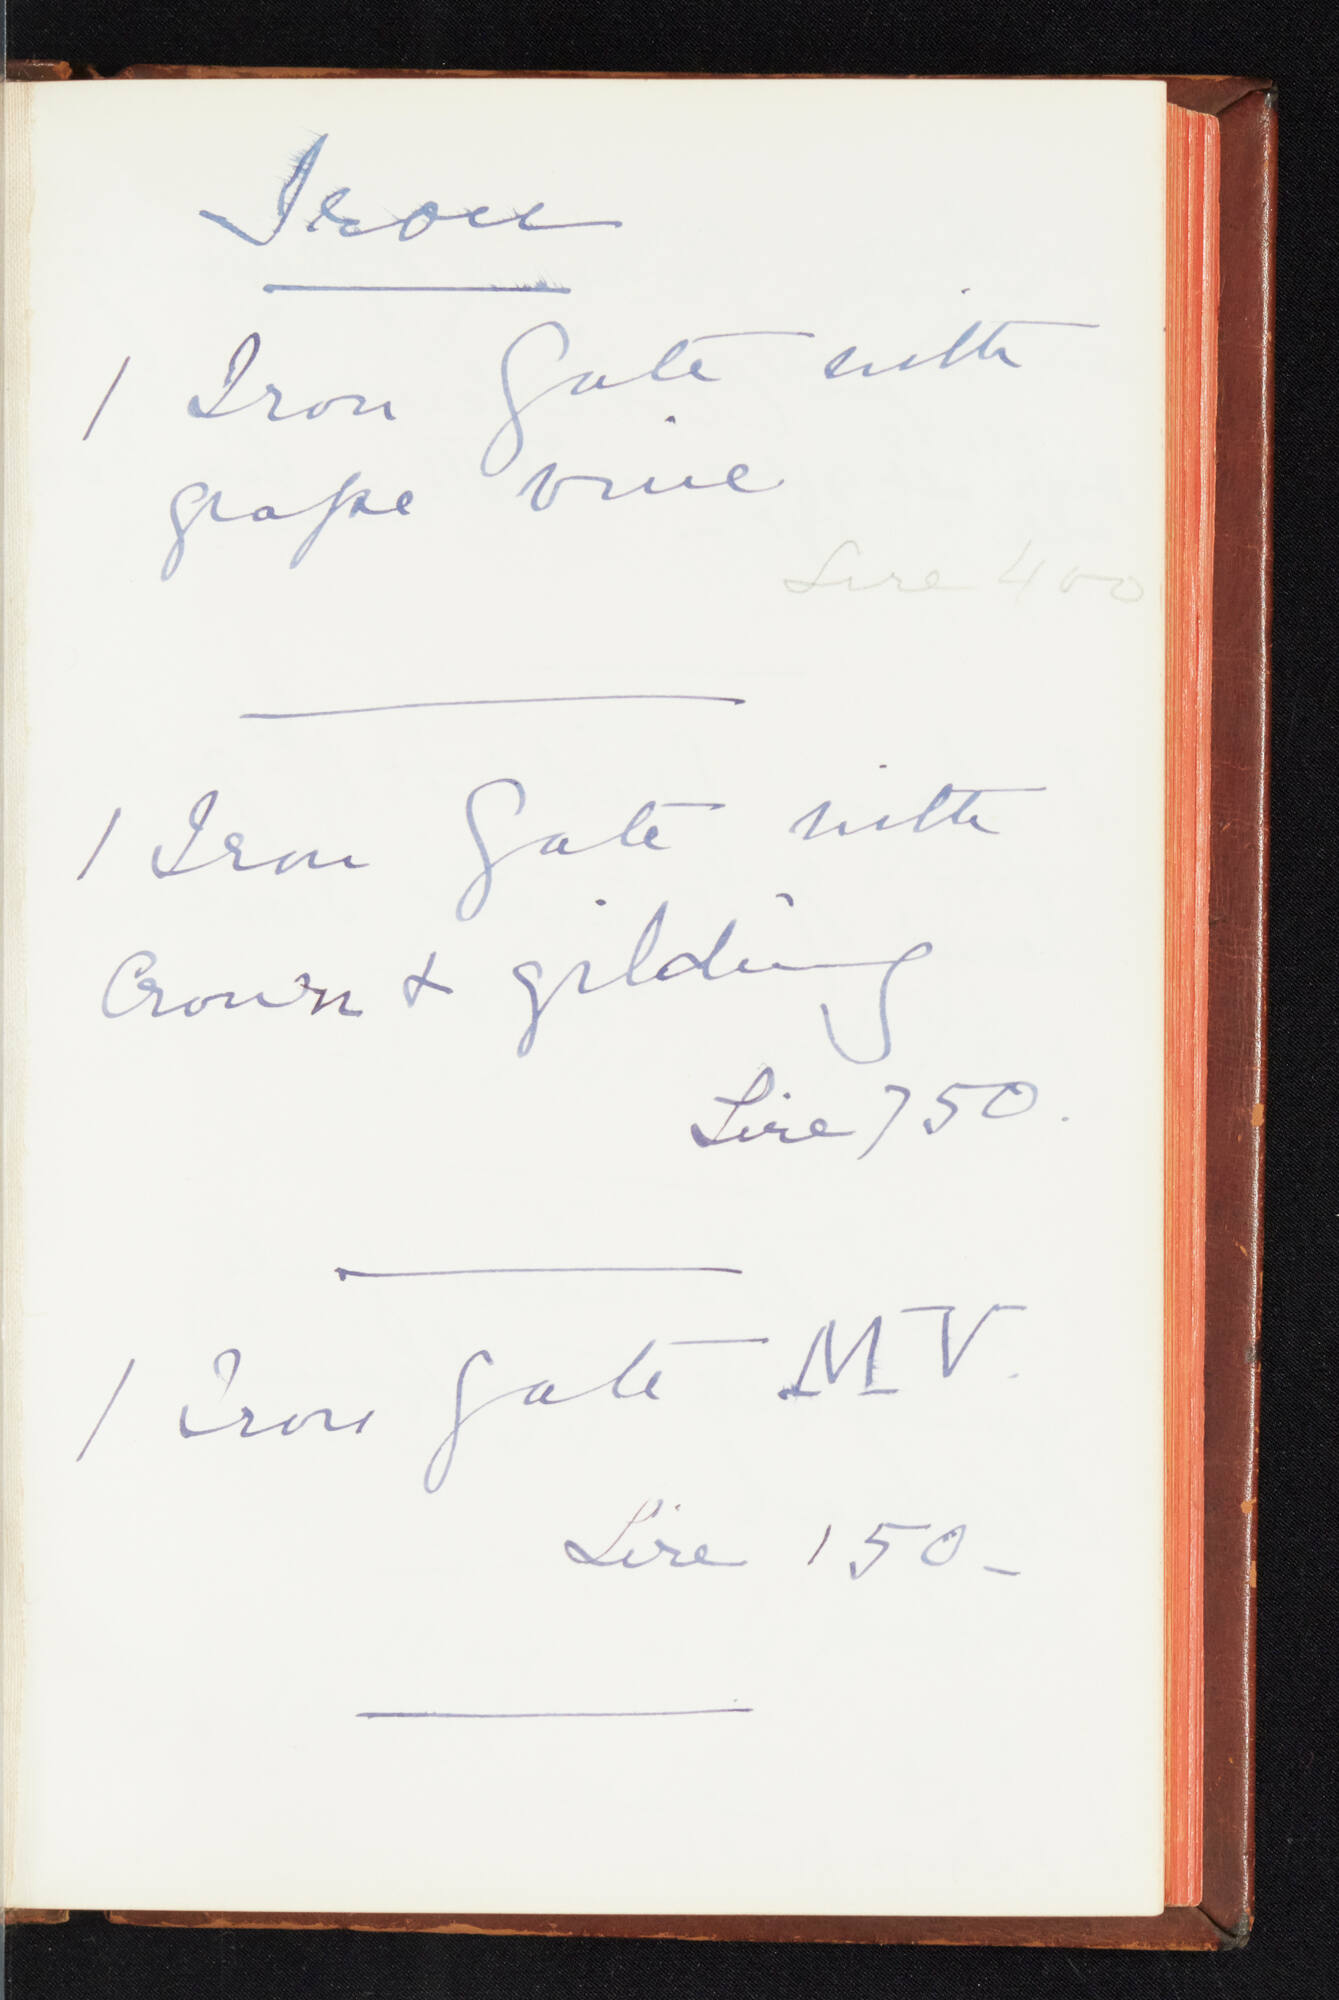 Iron
1 Iron Gate with
grape vine
Lire 400
1 Iron Gate with
Crown & gilding
Lire 750.
1 Iron Gate MV.
Lire 150-